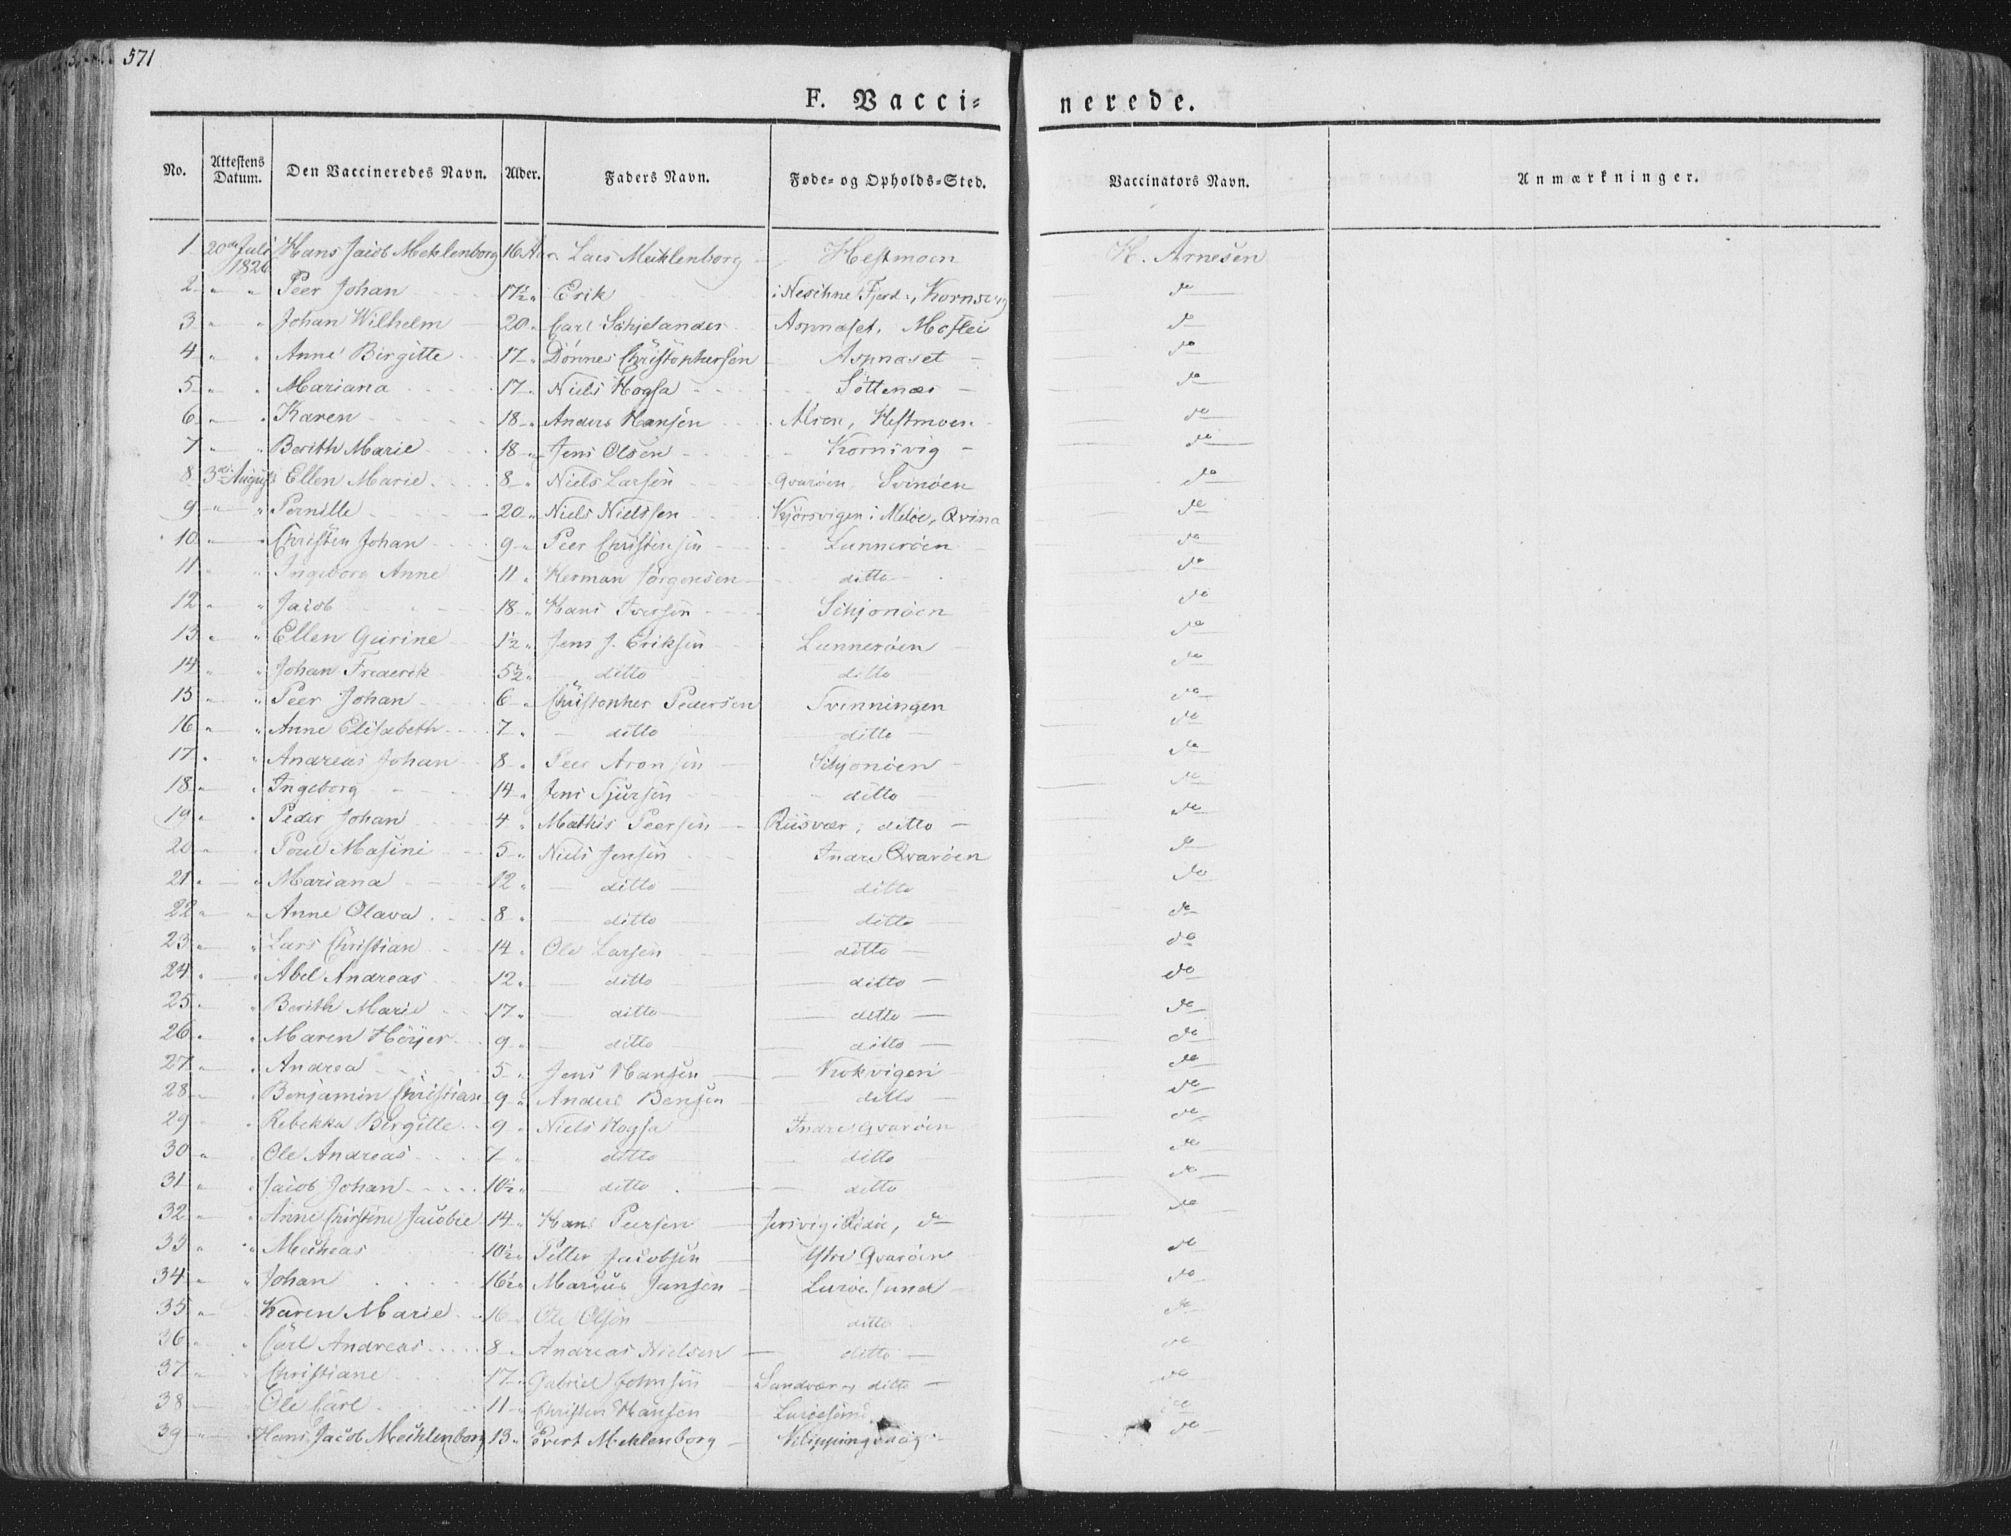 571
F. Vacci= nerede.
No. Attestens Datum. Den Vaccineredes Navn. Alder. Faders Navn. Føde- og Opholds-Sted. Vaccinators Navn. Anmærkninger.
1 20de Juli 1826 Hans Jacob Mechlenborg 16 Lars Mechlenborg Hestmoen H. Arnesen
2 " " Peer Johan 17½ " Erik i Nesihne Fjord, Kornsvig do
3 " " Johan Wilhelm 20 " Carl Schjelander Aspnæset, Moflei do
4 " " Anne Birgitte 17 " Dønnes Christophersen Aspnæset do
5 " " Mariana 17 " Niels Hogsa Søttenæs do
6 " " Karen 18 " Anders Hansen Alsen, Hestmoen do
7 " " Berith Marie 18 " Jens Olsen Kornsvig do
8 3die August Ellen Marie 8 " Niels Larsen Qvarøen, Svinøen do
9 " " Pernille 20 " Niels Nielssen Kjørsvigen i Meløe, Qvina do
10 " Christen Johan 9 " Peer Christensen Lunnerøen do
11 " " Ingeborg Anne 11 " Herman Jørgensen ditto do
12 " " Jacob 18 " Hans Iversen Schjonøen do
13 " " Ellen Gurine 1½ " Jens J. Eriksen Lunnerøen do
14 " " Johan Frederik 5½ " ditto ditto do
15 " " Peer Johan 6 " Christopher Pedersen Tvenningen do
16 " " Anne Elisabeth 7 " ditto ditto do
17 " " Andreas Johan 8 " Peer Aronsen Schjonøen do
18 " " Ingeborg 14 " Jens Sjursen ditto do
19 " " Peder Johan 4 " Mathis Peersen Riisvær, ditto do
20 " " Poul Masini 5 " Niels Jensen Indre Qvarøen do
21 " " Mariana 12 " ditto ditto do
22 " " Anne Olava 8 " ditto ditto do
23 " " Lars Christian 14 " Ole Larsen ditto do
24 " " Abel Andreas 12 " ditto ditto do
25 " " Berith Marie 17 " ditto ditto do
26 " " Maren Høyer 9 " ditto ditto do
27 " " Andrea 5 " Jens Hansen Kokvigen do
28 " " Benjamin Christian 9 " Anders Bensen ditto do
29 " " Rebekka Birgitte 9 " Niels Hogsa Indre Qvarøen do
30 " " Ole Andreas 7 " ditto ditto do
31 " " Jacob Johan 10½ " ditto ditto do
32 " " Anne Christine Jacobie 14 " Hans Peersen i Rødøe, do do
33 " " Meihras 10½ " Petter Jacobsen Ystre Qvarøen do
34 " " Johan 16½ " Marcus Jansen Lurøesund do
35 " " Karen Marie 16 Ole Olsen ditto do
36 " " Carl Andreas 8 " Andreas Nielsen ditto do
37 " " Christiane 17 " Gabriel Johnsen Sandvær, ditto do
38 " Ole Carl 11 " Christen Hansen Lurøesund do
39 " " Hans Jacob Mechlenborg 13 " Evert Meklenborg Klippingvaag do